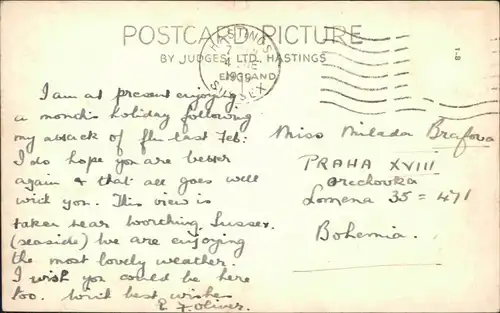 POSTCARD PICTURE
BY JUDGES, LTD., HASTINGS
ENGLAND
HASTINGS
SUSSEX
1-8
I am at present enjoying
a month's holiday following
my attack of flu last Feb:
I do hope you are better
again & that all goes well
with you. This view is
taken near Worthing, Sussex.
(seaside) We are enjoying
the most lovely weather.
I wish you could be here
too. With best wishes
E. F. Oliver.
Miss Milada Brafova
PRAHA XVIII
Orechovka
Lomena 35 = 471
Bohemia.